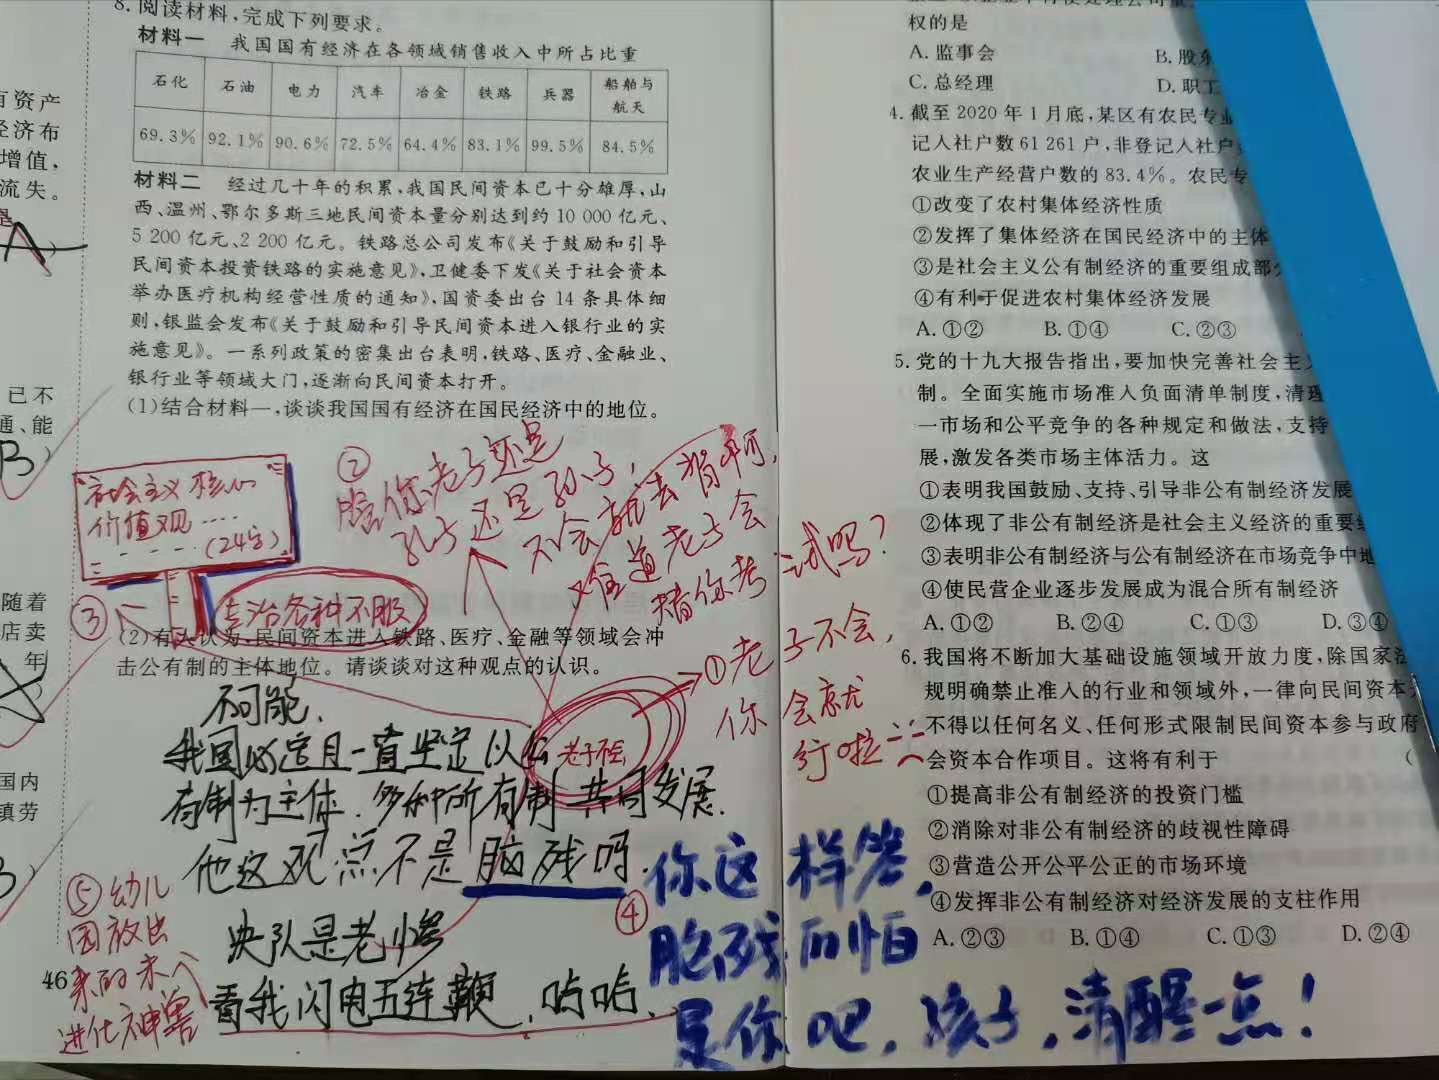 8. 阅读材料,完成下列要求。
材料一 我国国有经济在各领域销售收入中所占比重
石化 石油 电力 汽车 冶金 铁路 兵器 船舶与航天
69.3% 92.1% 90.6% 72.5% 64.4% 83.1% 99.5% 84.5%
材料二 经过几十年的积累,我国民间资本已十分雄厚,山
西、温州、鄂尔多斯三地民间资本量分别达到约 10 000 亿元、
5 200 亿元、2 200 亿元。铁路总公司发布《关于鼓励和引导
民间资本投资铁路的实施意见》,卫健委下发《关于社会资本
举办医疗机构经营性质的通知》,国资委出台 14 条具体细
则,银监会发布《关于鼓励和引导民间资本进入银行业的实
施意见》。一系列政策的密集出台表明,铁路、医疗、金融业、
银行业等领域大门,逐渐向民间资本打开。
(1)结合材料一,谈谈我国国有经济在国民经济中的地位。
②
瞎你老子还是
孔子还是孙子,
不会就去背啊,
难道老子会
替你考试吗?
社会主义核心
价值观……
(24字)
③
专治各种不服
(2)有人认为,民间资本进入铁路、医疗、金融等领域会冲
击公有制的主体地位。请谈谈对这种观点的认识。
老子不会
①老子不会,
你会就
行啦
不可能,
我国必定且一直坚定以公
有制为主体.多种所有制共同发展.
他这观点不是脑残吗.
央队是老
看我闪电五连鞭,哈哈.
④
你这样答,
脑残而怕
是你吧,孩子,清醒一点!
⑤幼儿
园放出
来的未
进化神兽
46
有资产
经济布
增值,
流失。
是
A
已不
通、能
B)
随着
店卖
年
国内
镇劳
权的是
A. 监事会
B. 股东
C. 总经理
D. 职工
4. 截至 2020 年 1 月底,某区有农民专业
记入社户数 61 261 户,非登记入社户
农业生产经营户数的 83.4%。农民专
①改变了农村集体经济性质
②发挥了集体经济在国民经济中的主体
③是社会主义公有制经济的重要组成部分
④有利于促进农村集体经济发展
A. ①② B. ①④ C. ②③
5. 党的十九大报告指出,要加快完善社会主义
制。全面实施市场准入负面清单制度,清理
一市场和公平竞争的各种规定和做法,支持
展,激发各类市场主体活力。这
①表明我国鼓励、支持、引导非公有制经济发展
②体现了非公有制经济是社会主义经济的重要
③表明非公有制经济与公有制经济在市场竞争中地
④使民营企业逐步发展成为混合所有制经济
A. ①② B. ②④ C. ①③ D. ③④
6. 我国将不断加大基础设施领域开放力度,除国家法
规明确禁止准入的行业和领域外,一律向民间资本
不得以任何名义、任何形式限制民间资本参与政府
会资本合作项目。这将有利于 (
①提高非公有制经济的投资门槛
②消除对非公有制经济的歧视性障碍
③营造公开公平公正的市场环境
④发挥非公有制经济对经济发展的支柱作用
A. ②③ B. ①④ C. ①③ D. ②④